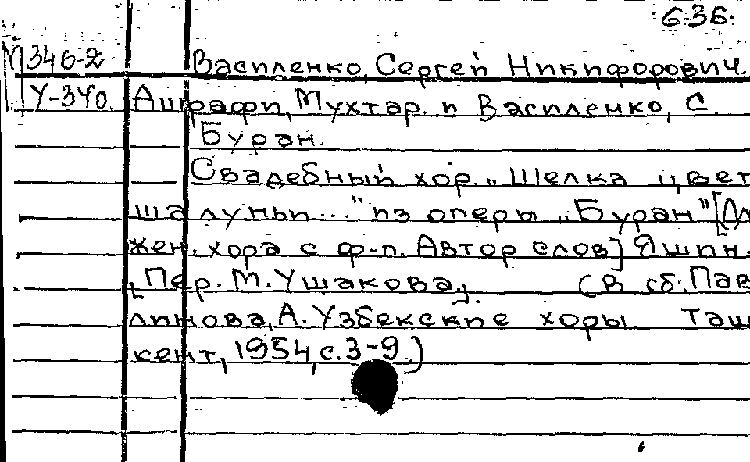 636.
М346-2 Василенко, Сергей Никифорович.
У-340. Ашрафи, Мухтар. и Василенко, С.
Буран.
Свадебный хор „Шелка цвет
шалуньи..." из оперы „Буран" [Дл
жен. хора с ф-п. Автор слов] Яшин.
[Пер. М. Ушакова]. (В сб: Пав
линова, А. Узбекские хоры Таш
кент, 1954, с. 3-9.)